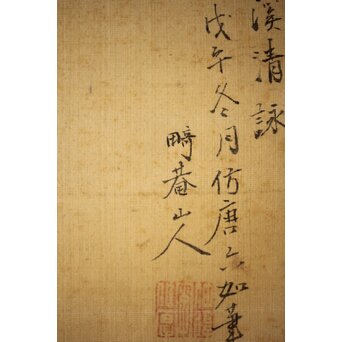 溪清詠
戊午冬月仿唐六如筆
畸菴山人